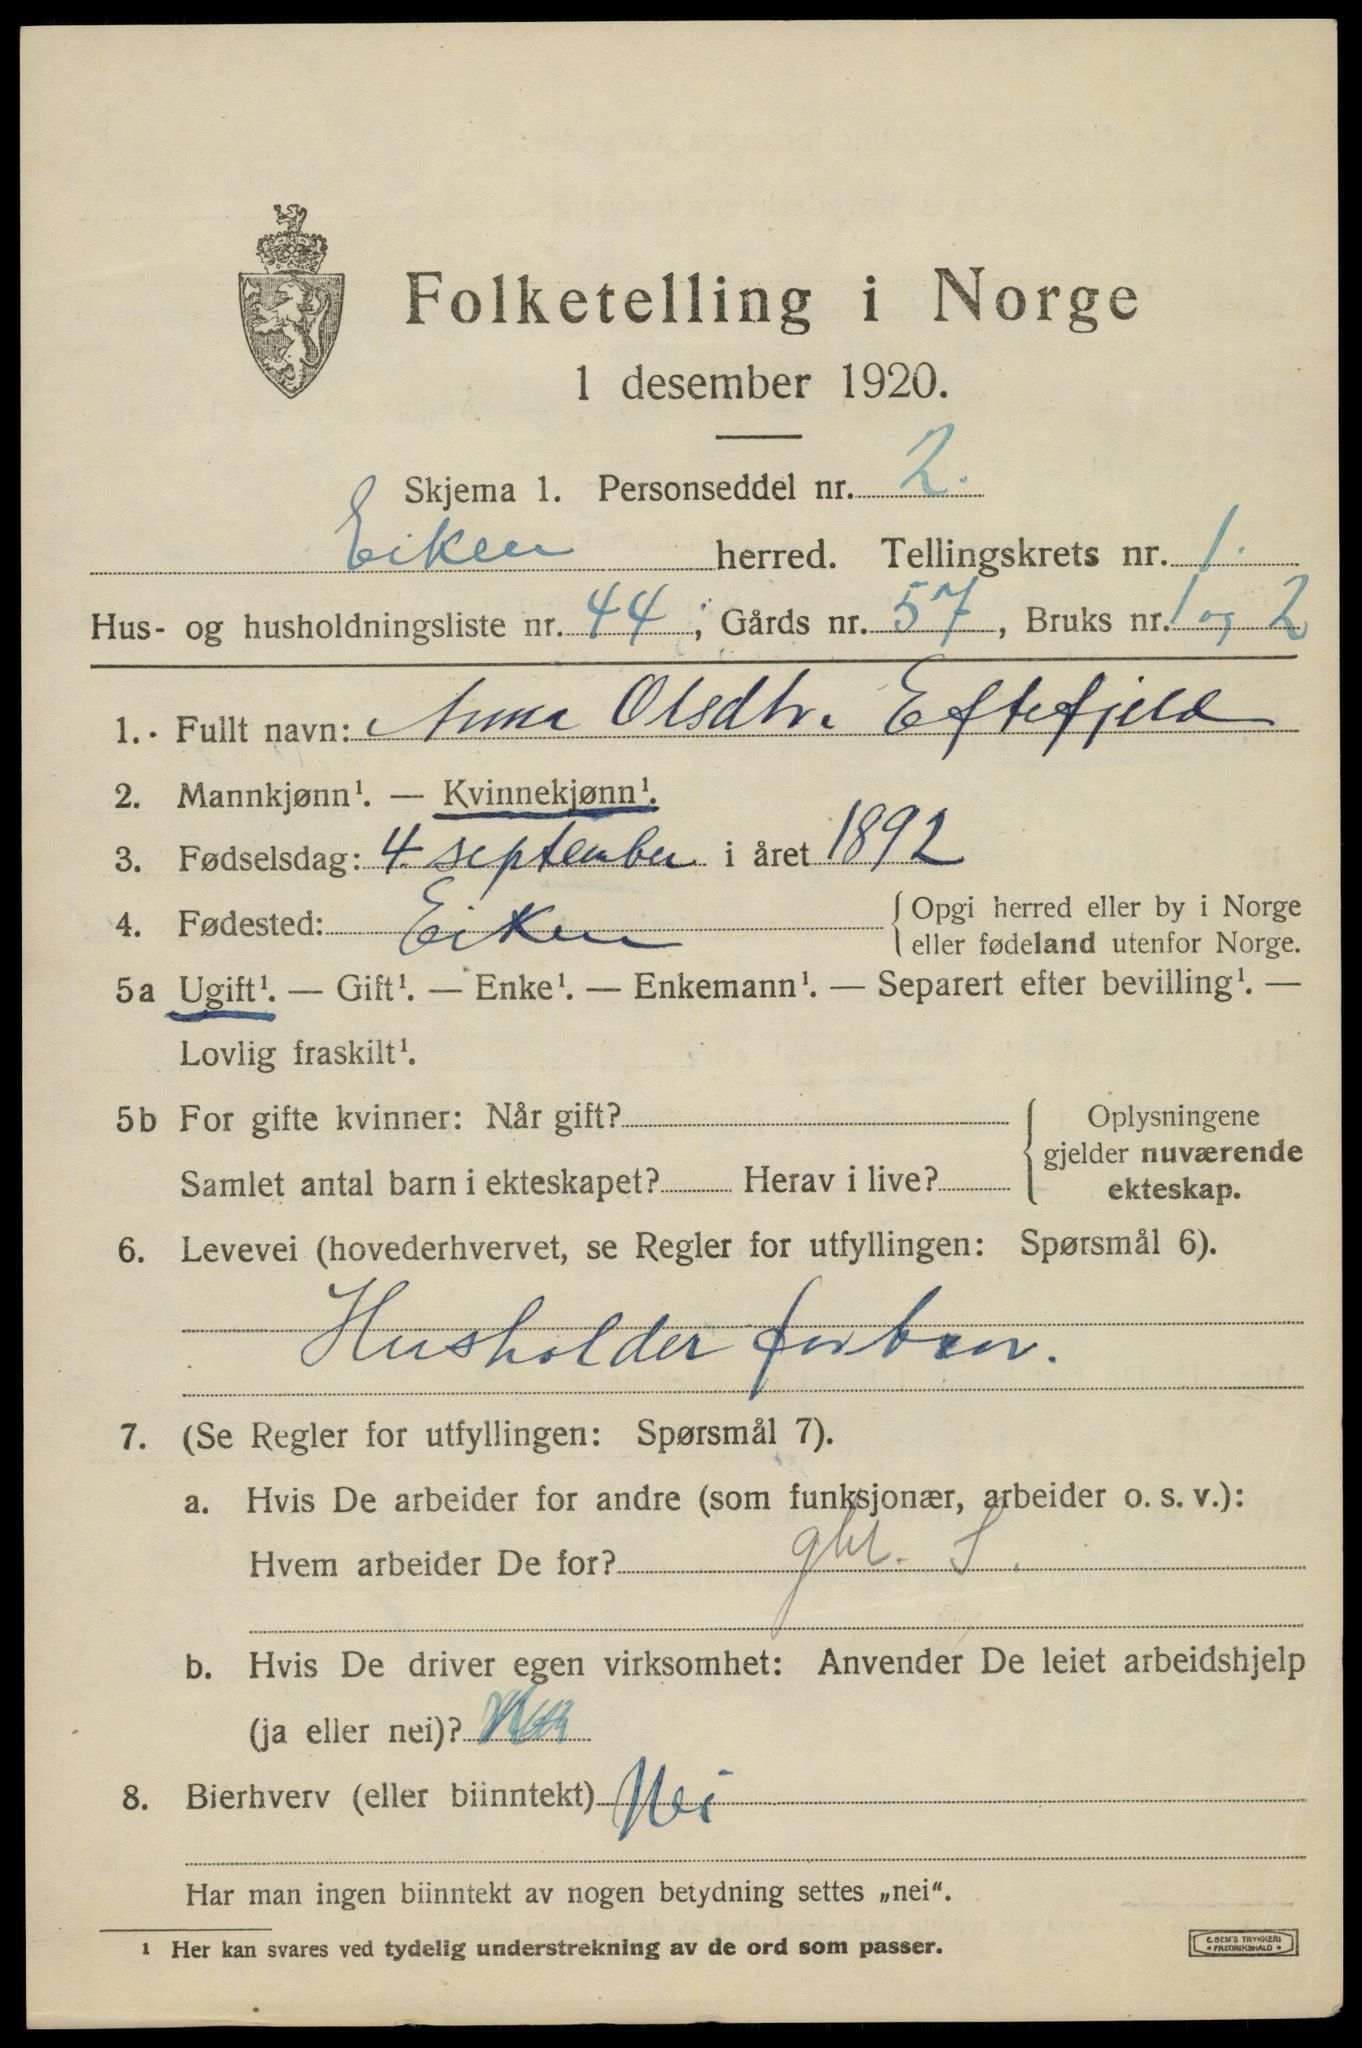 Folketelling i Norge
1 desember 1920.
Skjema 1. Personseddel nr. 2.
Eiken herred. Tellingskrets nr. 1.
Hus- og husholdningsliste nr. 44, Gårds nr. 57, Bruks nr. 1 og 2
1. Fullt navn: Anna Olsdtr. Eftefjeld
2. Mannkjønn¹. — Kvinnekjønn¹.
3. Fødselsdag: 4. september i året 1892
4. Fødested: Eiken
{ Opgi herred eller by i Norge
eller fødeland utenfor Norge.
5a Ugift¹. — Gift¹. — Enke¹. — Enkemann¹. — Separert efter bevilling¹. —
Lovlig fraskilt¹.
5b For gifte kvinner: Når gift?
Samlet antal barn i ekteskapet? Herav i live?
Oplysningene
gjelder nuværende
ekteskap.
6. Levevei (hovederhvervet, se Regler for utfyllingen: Spørsmål 6).
Husholder for bror.
7. (Se Regler for utfyllingen: Spørsmål 7).
a. Hvis De arbeider for andre (som funksjonær, arbeider o. s. v.):
Hvem arbeider De for? S.
b. Hvis De driver egen virksomhet: Anvender De leiet arbeidshjelp
(ja eller nei)?
8. Bierhverv (eller biinntekt) Nei
Har man ingen biinntekt av nogen betydning settes „nei“.
¹ Her kan svares ved tydelig understrekning av de ord som passer.
E. SEM'S TRYKKERI
• FREDRIKSHALD •